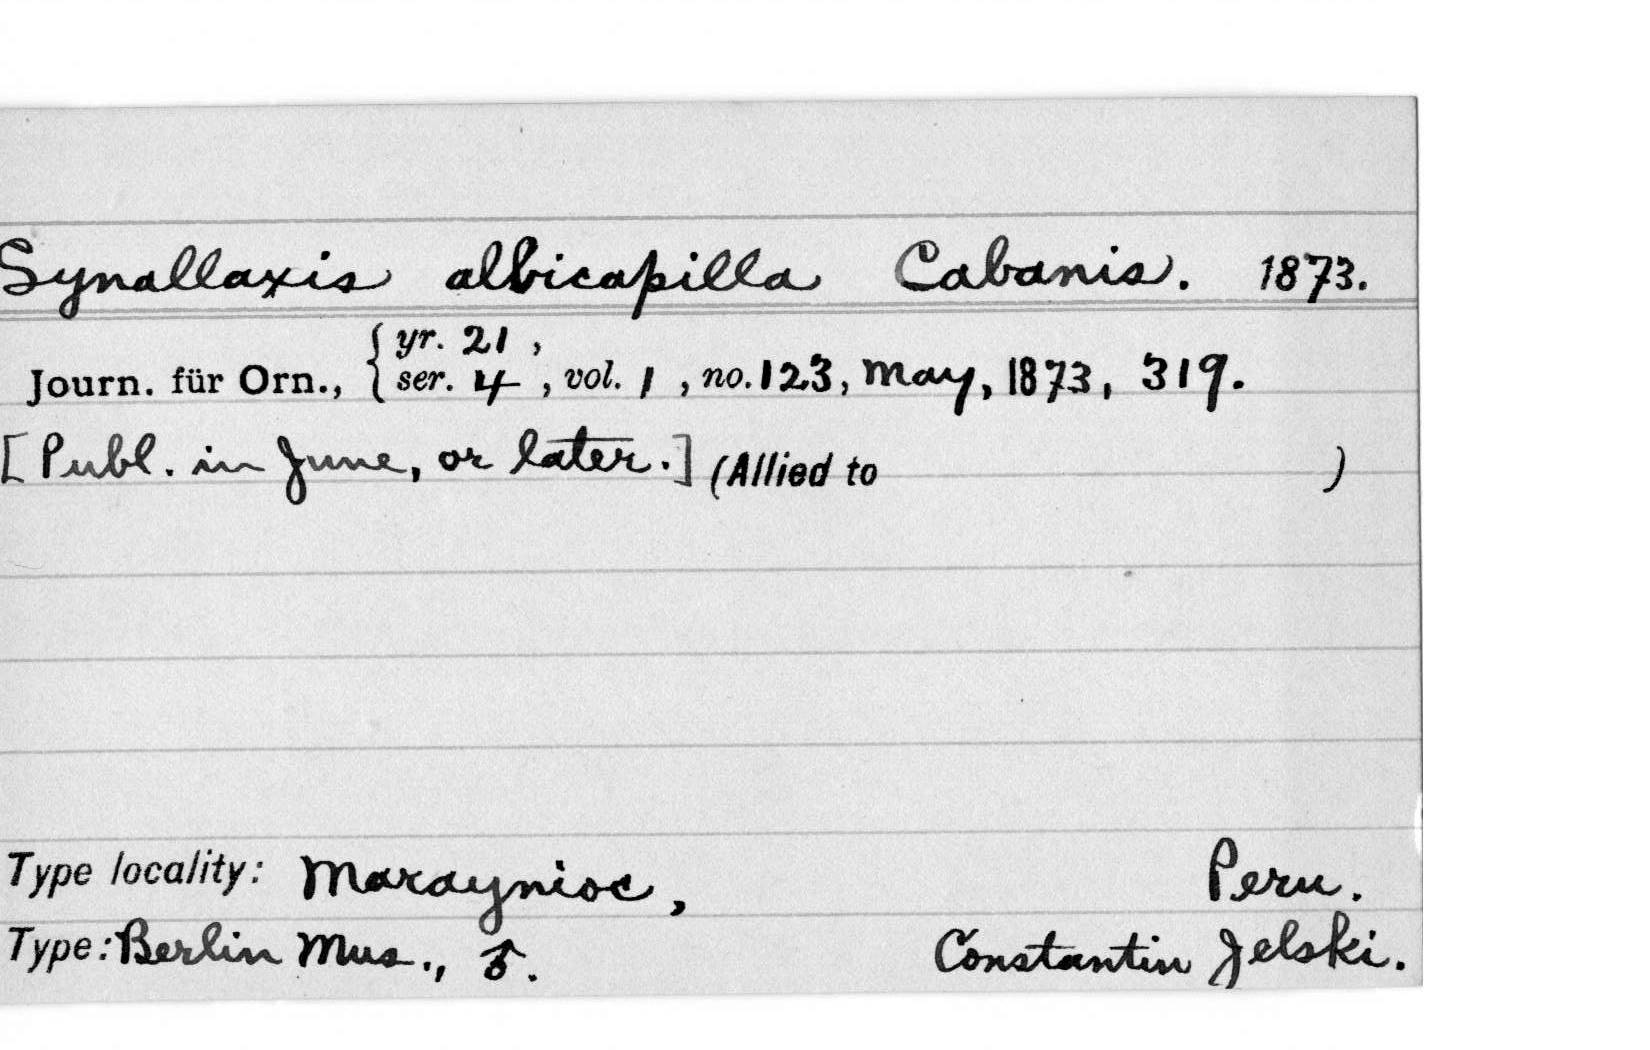 Synallaxis albicapilla Cabanis. 1873.
yr. 21,
Journ. für Orn., { ser. 4, vol. 1, no. 123, May, 1873, 319.
[Publ. in June, or later.] (Allied to )
Type locality: Maraynioc, Peru.
Type: Berlin Mus., ♂. Constantin Jelski.